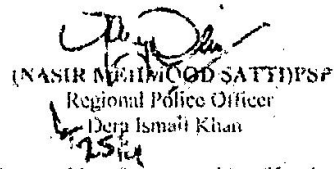 (NASIR MEHMOOD SATTI)PSP
Regional Police Officer
Dera Ismail Khan